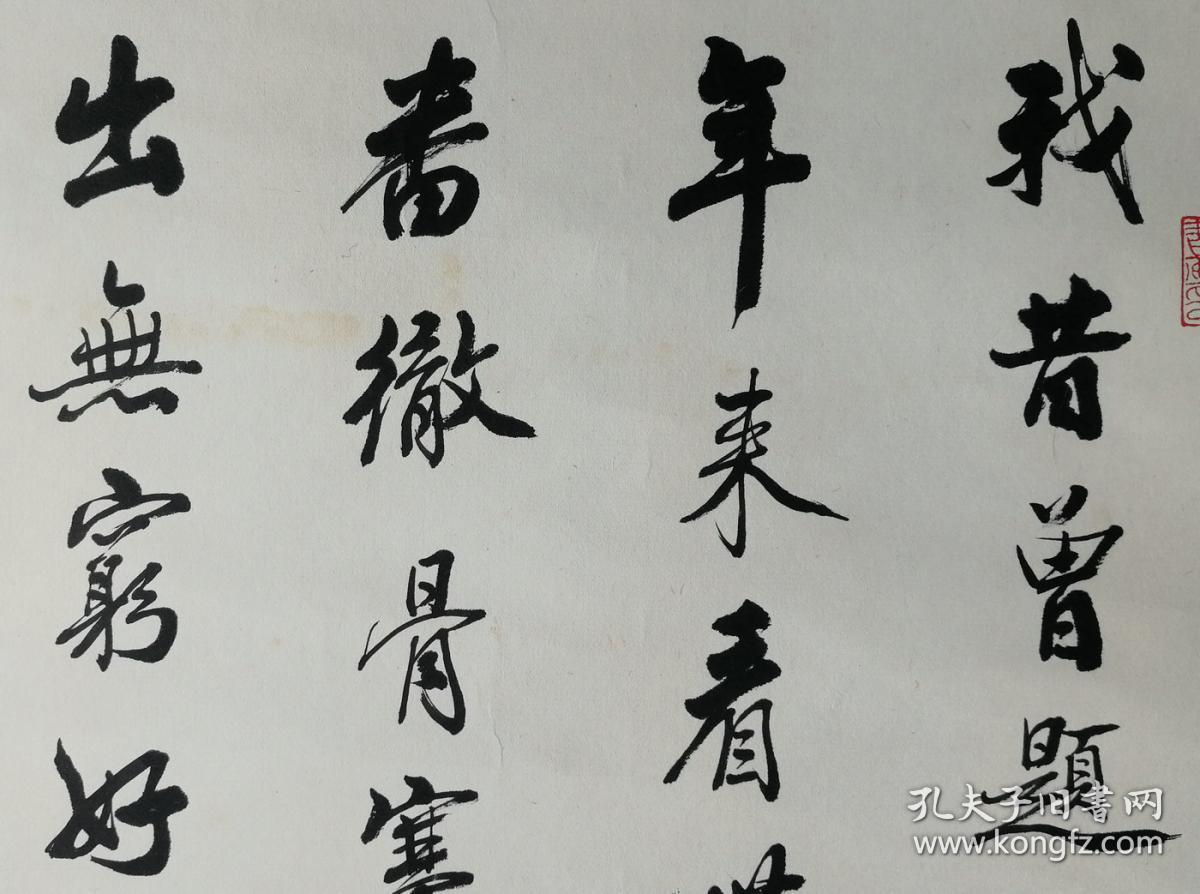 我昔曾題
年来看世
番徹骨寒
出無窮好
孔夫子旧书网
www.kongfz.com